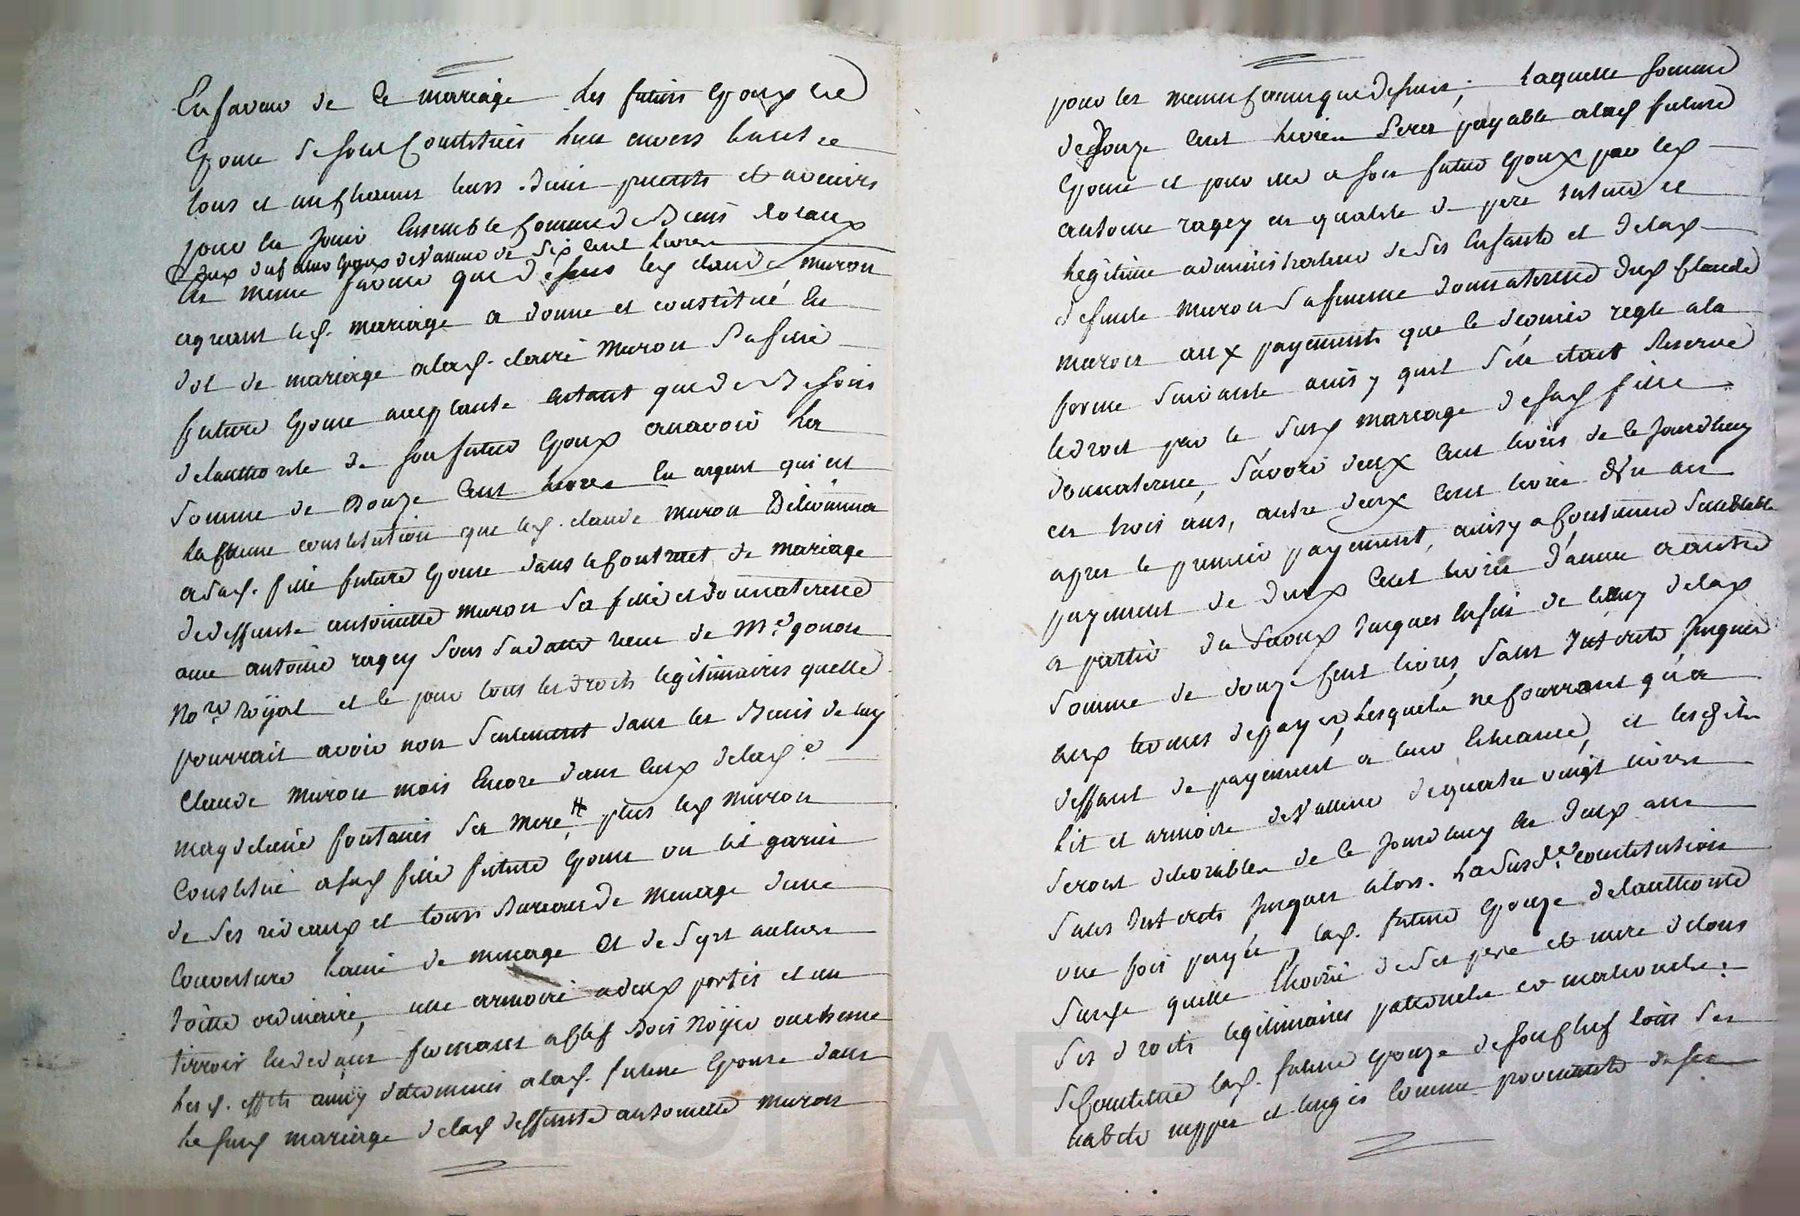 En faveur de ce mariage les futurs Epoux et
Epouse se sont constitués l'un envers l'autre
tous et un chacuns leurs Biens presents et avenirs
pour en jouir Ensemble comme de Biens dotaux
ceux du futur Epoux de Valleur de six cent livres
En meme faveur que dessus led claude muron
agreant led. mariage a donné et constitué en
dot de mariage a lad. claire muron sa fille
future Epouse acceptante autant que de Besoin
de lauthorité de son futur Epoux a savoir la
somme de Douze cent livres en argent qui est
la meme constitution que led. claude muron
a sad. fille future Epouse dans le contract de mariage
de deffunte antoinette muron sa fille et donnateresse
avec antoine ragey sous sa datte receu de Me gonon
Nore Royal et ce pour tous les droits legitimaires quelle
pourrait avoir non seulement dans les Biens de luy
Claude Muron mais Encore dans ceux de lad.e
magdelaine fontanis sa mere, # plus led Muron
Constitue a sad fille future Epouse un lit garni
de ses rideaux et tours de menage d'une
Couverture laine de menage et de sept aulnes
toille ordinaire, une armoire a deux portes et un
tirroir en dedans fermant a clef Bois Noyer ou cherme
Lesd. effets ainsy determinés a lad. future Epouse dans
le susd mariage de lad deffunte antoinette muron
pour les memes causes que dessus; Laquelle somme
de Douze cent livres sera payable a lad future
Epouse et pour elle a son futur Epoux par led
antoine ragey en qualité de pere tuteur et
legitime administrateur de ses Enfants et de lad
defunte Muron sa femme donnateresse dud Claude
muron aux payements que le dernier regle a la
forme suivante ainsy quil s'en etait reservé
le droit par le susd mariage de sad fille
donnateresse, savoir deux cent livres de ce jourdhuy
en trois ans, autre deux cent livres d'un an
apres le premier payement, ainsy a continuer semblable
payement de deux cent livres d'annee a autre
a partir du jusques enfin de lad
somme de douze cent livres, sans Interets jusques
aux termes de payer, lesquels ne courront qu'a
deffaut de payement a leur Echeance, et lesd
lit et armoire de Valleur de quatre vingt livres
seront delivrables de ce jourdhuy en deux ans
sans Interets jusques alors. Ladusd.e constitution
une fois payée, lad. future Epouze de lauthorité
susd quitte l'hoirie de ses pere et mere de tous
ses droits legitimaires paternels et maternels.
se constitue lad. future epouze de son chef
habits nippes et linges comme provenants de ses